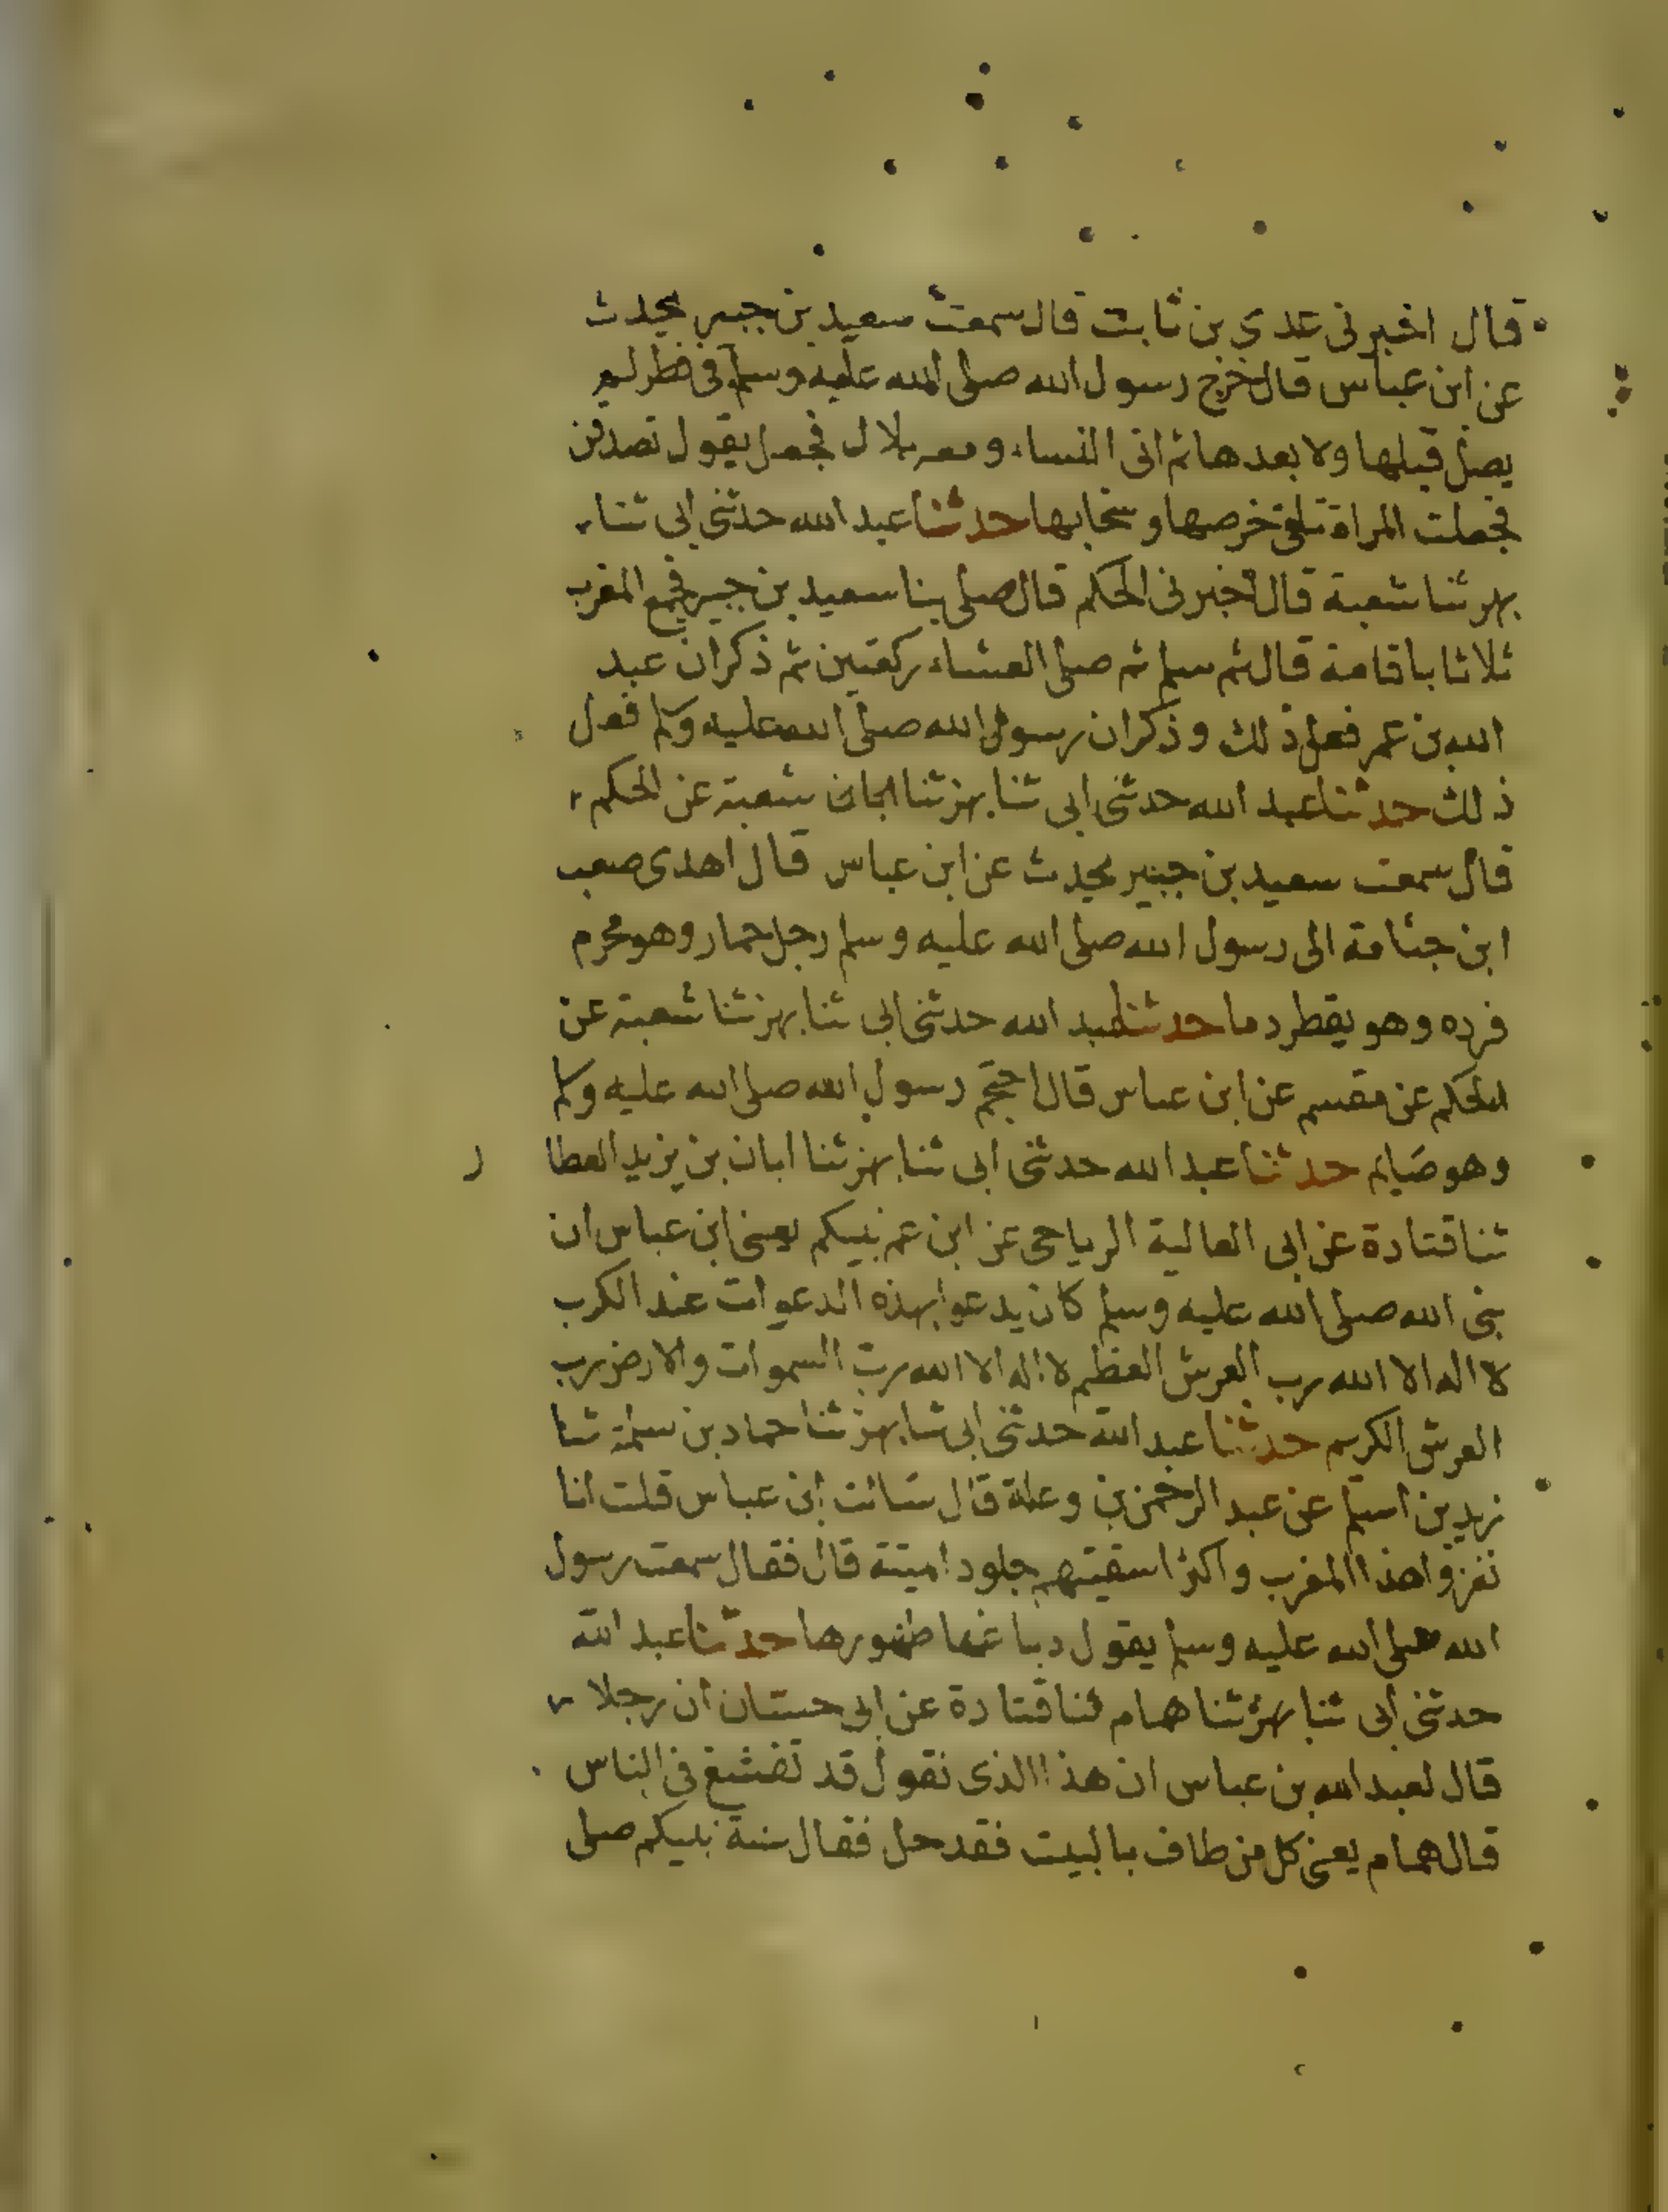 قال اخبرنى عدي بن ثابت قال سمعت سعيد بن جبير يحدث
عن ابن عباس قال خرج رسول الله صلى الله عليه وسلم فى فطر لم
يصل قبلها ولا بعدها ثم اتى النساء ومعه بلال فجعل يقول تصدقن
فجعلت المراة تلقى خرصها وسخابها حدثنا عبد الله حدثنى ابى ثنا
بهز ثنا شعبة قال اخبرنى الحكم قال صلى بنا سعيد بن جبير فجمع المغرب
ثلاثا باقامة قال ثم سلم ثم صلى العشاء ركعتين ثم ذكر ان عبد
الله بن عمر فعل ذلك وذكر ان رسول الله صلى الله عليه وسلم فعل
ذلك حدثنا عبد الله حدثنى ابى ثنا بهز ثنا شعبة عن الحكم
قال سمعت سعيد بن جبير يحدث عن ابن عباس قال اهدى صعب
ابن جثامة الى رسول الله صلى الله عليه وسلم رجل حمار وهو محرم
فرده وهو يقطر دما حدثنا عبد الله حدثنى ابى ثنا بهز ثنا شعبة عن
الحكم عن مقسم عن ابن عباس قال احتجم رسول الله صلى الله عليه وسلم
وهو صايم حدثنا عبد الله حدثنى ابى ثنا بهز ثنا ابان بن يزيد العطا ر
ثنا قتادة عن ابى العالية الرياحى عن ابن عم نبيكم يعنى ابن عباس ان
نبى الله صلى الله عليه وسلم كان يدعوا بهذه الدعوات عند الكرب
لا اله الا الله رب العرش العظيم لا اله الا الله رب السموات والارض رب
العرش الكريم حدثنا عبد الله حدثنى ابى ثنا بهز ثنا حماد بن سلمة ثنا
زيد بن اسلم عن عبد الرحمن بن وعلة قال سالت ابن عباس قلت انا
نغزوا هذا المغرب واكثر اسقيتهم جلود الميتة قال فقال سمعت رسول
الله صلى الله عليه وسلم يقول دباغها طهورها حدثنا عبد الله
حدثنى ابى ثنا بهز ثنا همام ثنا قتادة عن ابى حسان ان رجلا
قال لعبد الله بن عباس ان هذا الذى نقول قد تفشغ فى الناس
قال همام يعنى كل من طاف بالبيت فقد حل فقال سنة نبيكم صلى